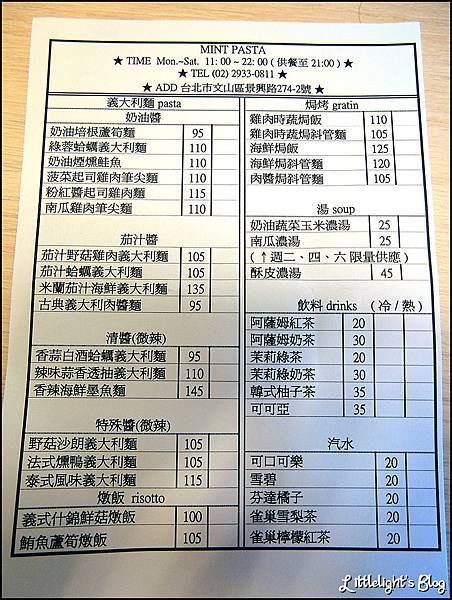 MINT PASTA
★ TIME Mon.~Sat. 11:00~22:00 (供餐至21:00) ★
★ TEL (02) 2933-0811 ★
★ ADD 台北市文山區景興路274-2號 ★
義大利麵 pasta
奶油醬
奶油培根蘆筍麵 95
綠蓉蛤蠣義大利麵 110
奶油煙燻鮭魚 110
菠菜起司雞肉筆尖麵 110
粉紅醬起司雞肉麵 115
南瓜雞肉筆尖麵 110
茄汁醬
茄汁野菇雞肉義大利麵 105
茄汁蛤蠣義大利麵 105
米蘭茄汁海鮮義大利麵 135
古典義大利肉醬麵 95
清醬(微辣)
香蒜白酒蛤蠣義大利麵 95
辣味蒜香透抽義大利麵 110
香辣海鮮墨魚麵 145
特殊醬(微辣)
野菇沙朗義大利麵 105
法式燻鴨義大利麵 105
泰式風味義大利麵 115
燉飯 risotto
義式什錦鮮菇燉飯 100
鮪魚蘆筍燉飯 105
焗烤 gratin
雞肉時蔬焗飯 110
雞肉時蔬焗斜管麵 105
海鮮焗飯 125
海鮮焗斜管麵 120
肉醬焗斜管麵 105
湯 soup
奶油蔬菜玉米濃湯 25
南瓜濃湯 25
(↑週二、四、六 限量供應)
酥皮濃湯 45
飲料 drinks (冷/熱)
阿薩姆紅茶 20
阿薩姆奶茶 30
茉莉綠茶 20
茉莉綠奶茶 30
韓式柚子茶 35
可可亞 35
汽水
可口可樂 20
雪碧 20
芬達橘子 20
雀巢雪梨茶 20
雀巢檸檬紅茶 20
Littlelight's Blog